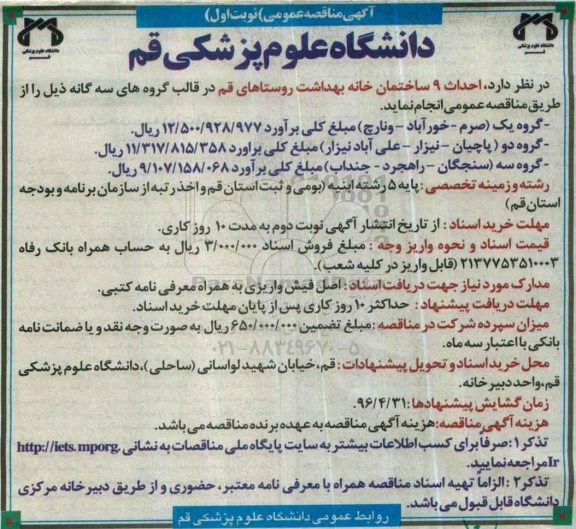 آگهی مناقصه عمومی (نوبت اول)
دانشگاه علوم پزشکی قم
دانشگاه علوم پزشکی قم
دانشگاه علوم پزشکی قم
در نظر دارد، احداث ۹ ساختمان خانه بهداشت روستاهای قم در قالب گروه های سه گانه ذیل را از
طریق مناقصه عمومی انجام نماید.
-گروه یک (صرم -خورآباد -ونارچ) مبلغ کلی برآورد ۱۲/۵۰۰/۹۲۸/۹۷۷ ریال.
-گروه دو ( پاچیان - نیزار -علی آباد نیزار) مبلغ کلی براورد ۱۱/۳۱۷/۸۱۵/۳۵۸ ریال.
-گروه سه (سنجگان - راهجرد - جنداب) مبلغ کلی براورد ۹/۱۰۷/۱۵۸/۰۶۸ ریال.
رشته و زمینه تخصصی : پایه ۵ رشته ابنیه (بومی و ثبت استان قم و اخذ رتبه از سازمان برنامه و بودجه
استان قم)
مهلت خرید اسناد : از تاریخ انتشار آگهی نوبت دوم به مدت ۱۰ روز کاری.
قیمت اسناد و نحوه واریز وجه : مبلغ فروش اسناد ۳/۰۰۰/۰۰۰ ریال به حساب همراه بانک رفاه
۲۱۳۷۷۵۳۵۱۰۰۰۳ (قابل واریز در کلیه شعب).
مدارک مورد نیاز جهت دریافت اسناد : اصل فیش واریزی به همراه معرفی نامه کتبی.
مهلت دریافت پیشنهاد : حداکثر ۱۰ روز کاری پس از پایان مهلت خرید اسناد.
میزان سپرده شرکت در مناقصه :مبلغ تضمین ۶۵۰/۰۰۰/۰۰۰ ریال به صورت وجه نقد و یا ضمانت نامه
بانکی با اعتبار سه ماه.
۰۲۱-۸۸۳۴۹۶۷۰-۵
محل خرید اسناد و تحویل پیشنهادات : قم، خیابان شهید لواسانی (ساحلی)، دانشگاه علوم پزشکی
قم، واحد دبیرخانه.
زمان گشایش پیشنهادها :۹۶/۴/۳۱.
هزینه آگهی مناقصه: هزینه آگهی مناقصه به عهده برنده مناقصه می باشد.
تذکر۱: صرفاً برای کسب اطلاعات بیشتر به سایت پایگاه ملی مناقصات به نشانی http://iets.mporg.
Ir مراجعه نمایید.
تذکر۲ : الزاماً تهیه اسناد مناقصه همراه با معرفی نامه معتبر، حضوری و از طریق دبیرخانه مرکزی
دانشگاه قابل قبول می باشد.
روابط عمومی دانشگاه علوم پزشکی قم